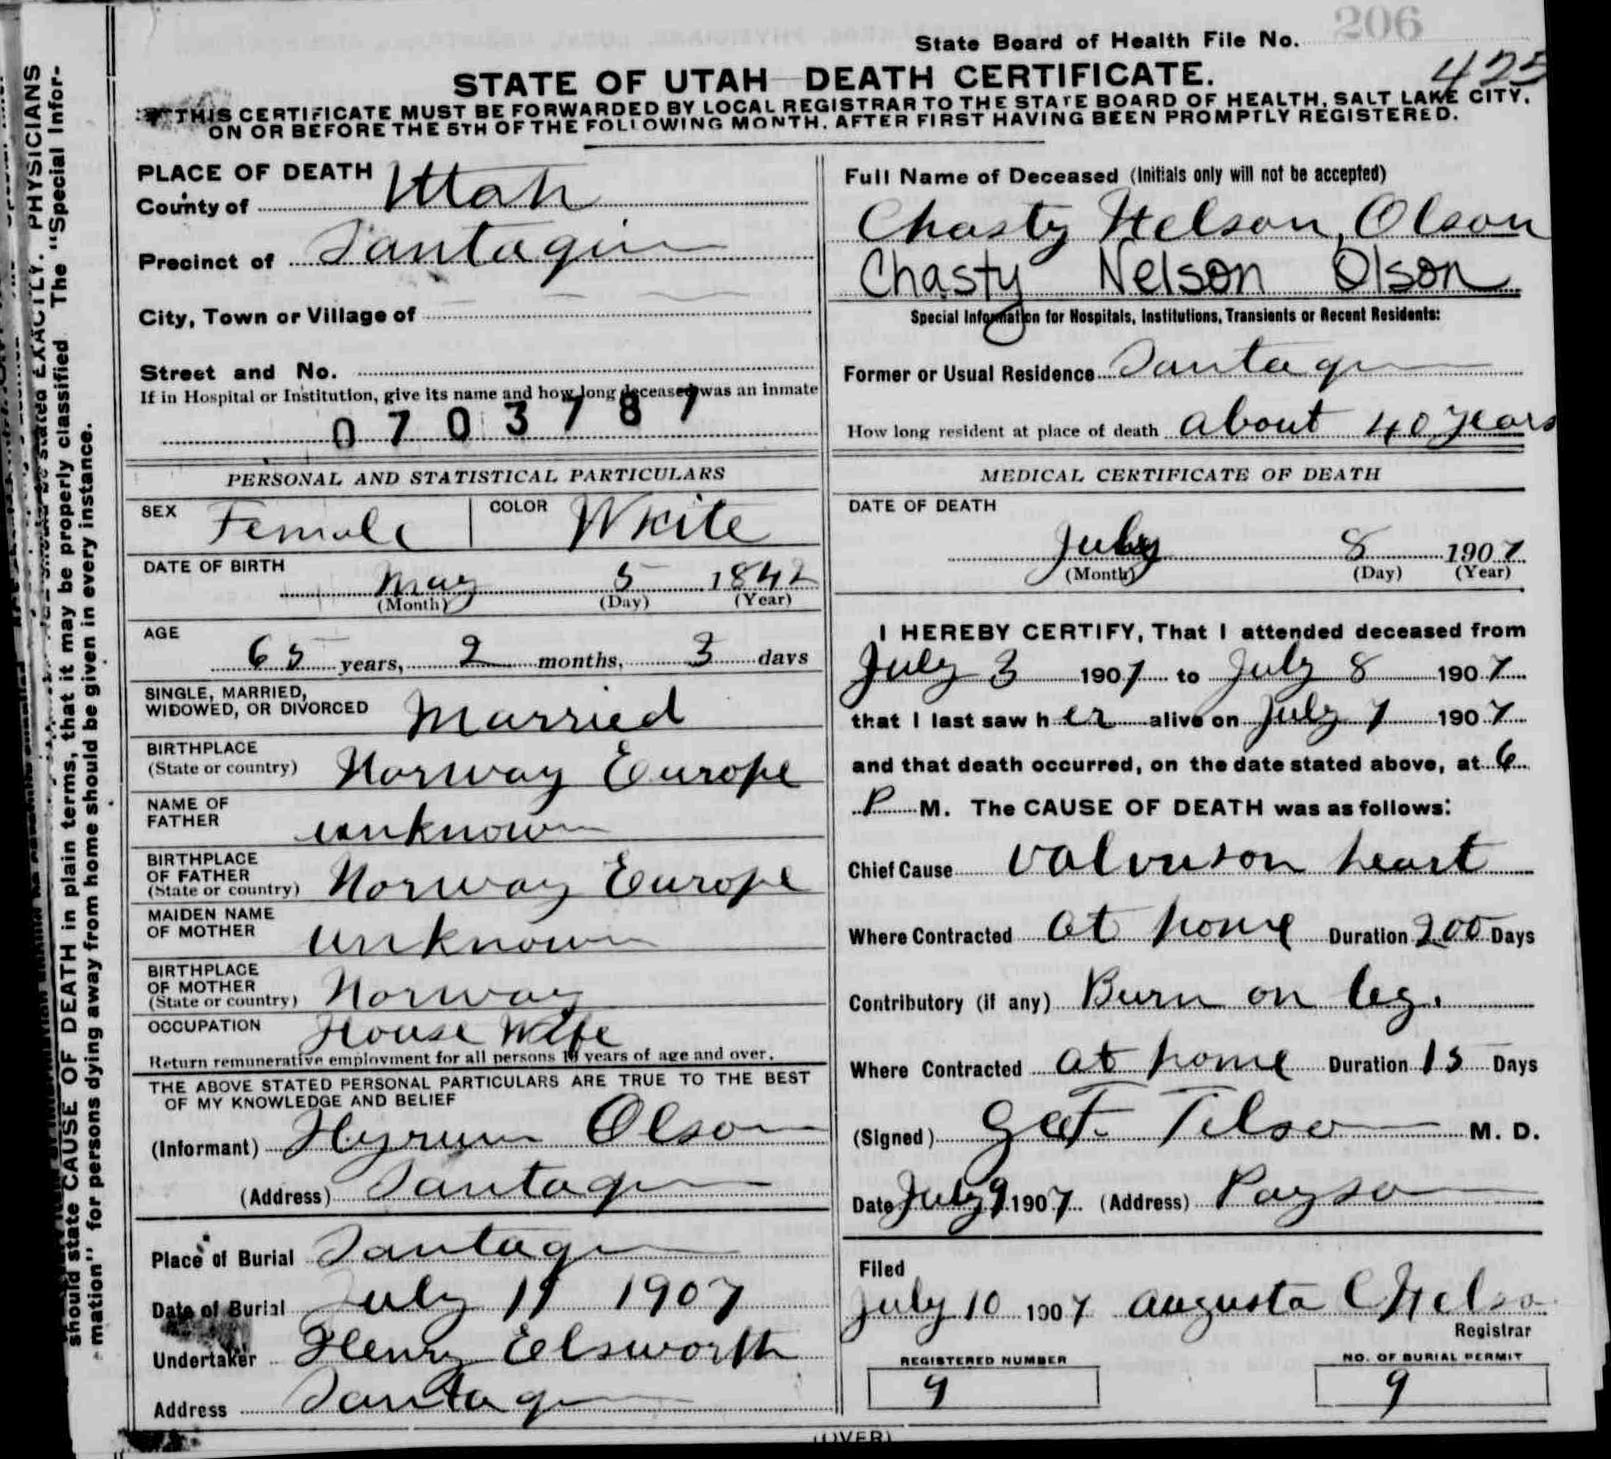 206
State Board of Health File No.
425
STATE OF UTAH DEATH CERTIFICATE.
THIS CERTIFICATE MUST BE FORWARDED BY LOCAL REGISTRAR TO THE STATE BOARD OF HEALTH, SALT LAKE CITY,
ON OR BEFORE THE 5TH OF THE FOLLOWING MONTH, AFTER FIRST HAVING BEEN PROMPTLY REGISTERED.
PLACE OF DEATH
County of Utah
Precinct of Santaquin
City, Town or Village of
Street and No.
If in Hospital or Institution, give its name and how long deceased was an inmate
0703787
PERSONAL AND STATISTICAL PARTICULARS
SEX Female COLOR White
DATE OF BIRTH
May 5 1842
(Month) (Day) (Year)
AGE
65 years, 2 months, 3 days
SINGLE, MARRIED,
WIDOWED, OR DIVORCED Married
BIRTHPLACE
(State or country) Norway Europe
NAME OF
FATHER unknown
BIRTHPLACE
OF FATHER
(State or country) Norway Europe
MAIDEN NAME
OF MOTHER unknown
BIRTHPLACE
OF MOTHER
(State or country) Norway
OCCUPATION House Wife
Return remunerative employment for all persons 10 years of age and over.
THE ABOVE STATED PERSONAL PARTICULARS ARE TRUE TO THE BEST
OF MY KNOWLEDGE AND BELIEF
(Informant) Hyrum Olson
(Address) Santaquin
Place of Burial Santaquin
Date of Burial July 11 1907
Undertaker Henry Elsworth
Address Santaquin
Full Name of Deceased (Initials only will not be accepted)
Chasty Nelson Olson
Chasty Nelson Olson
Special Information for Hospitals, Institutions, Transients or Recent Residents:
Former or Usual Residence Santaquin
How long resident at place of death about 40 years
MEDICAL CERTIFICATE OF DEATH
DATE OF DEATH
July 8 1907
(Month) (Day) (Year)
I HEREBY CERTIFY, That I attended deceased from
July 3 1907 to July 8 1907
that I last saw her alive on July 7 1907
and that death occurred, on the date stated above, at 6
P M. The CAUSE OF DEATH was as follows:
Chief Cause heart
Where Contracted at home Duration 200 Days
Contributory (if any) Burn on leg.
Where Contracted at home Duration 15 Days
(Signed) M. D.
Date July 9 1907 (Address) Payson
Filed
July 10 1907 Augusta C Nelson
Registrar
REGISTERED NUMBER
9
NO. OF BURIAL PERMIT
9
(OVER)
EXACTLY. PHYSICIANS
should state CAUSE OF DEATH in plain terms, that it may be properly classified The "Special Infor-
mation" for persons dying away from home should be given in every instance.